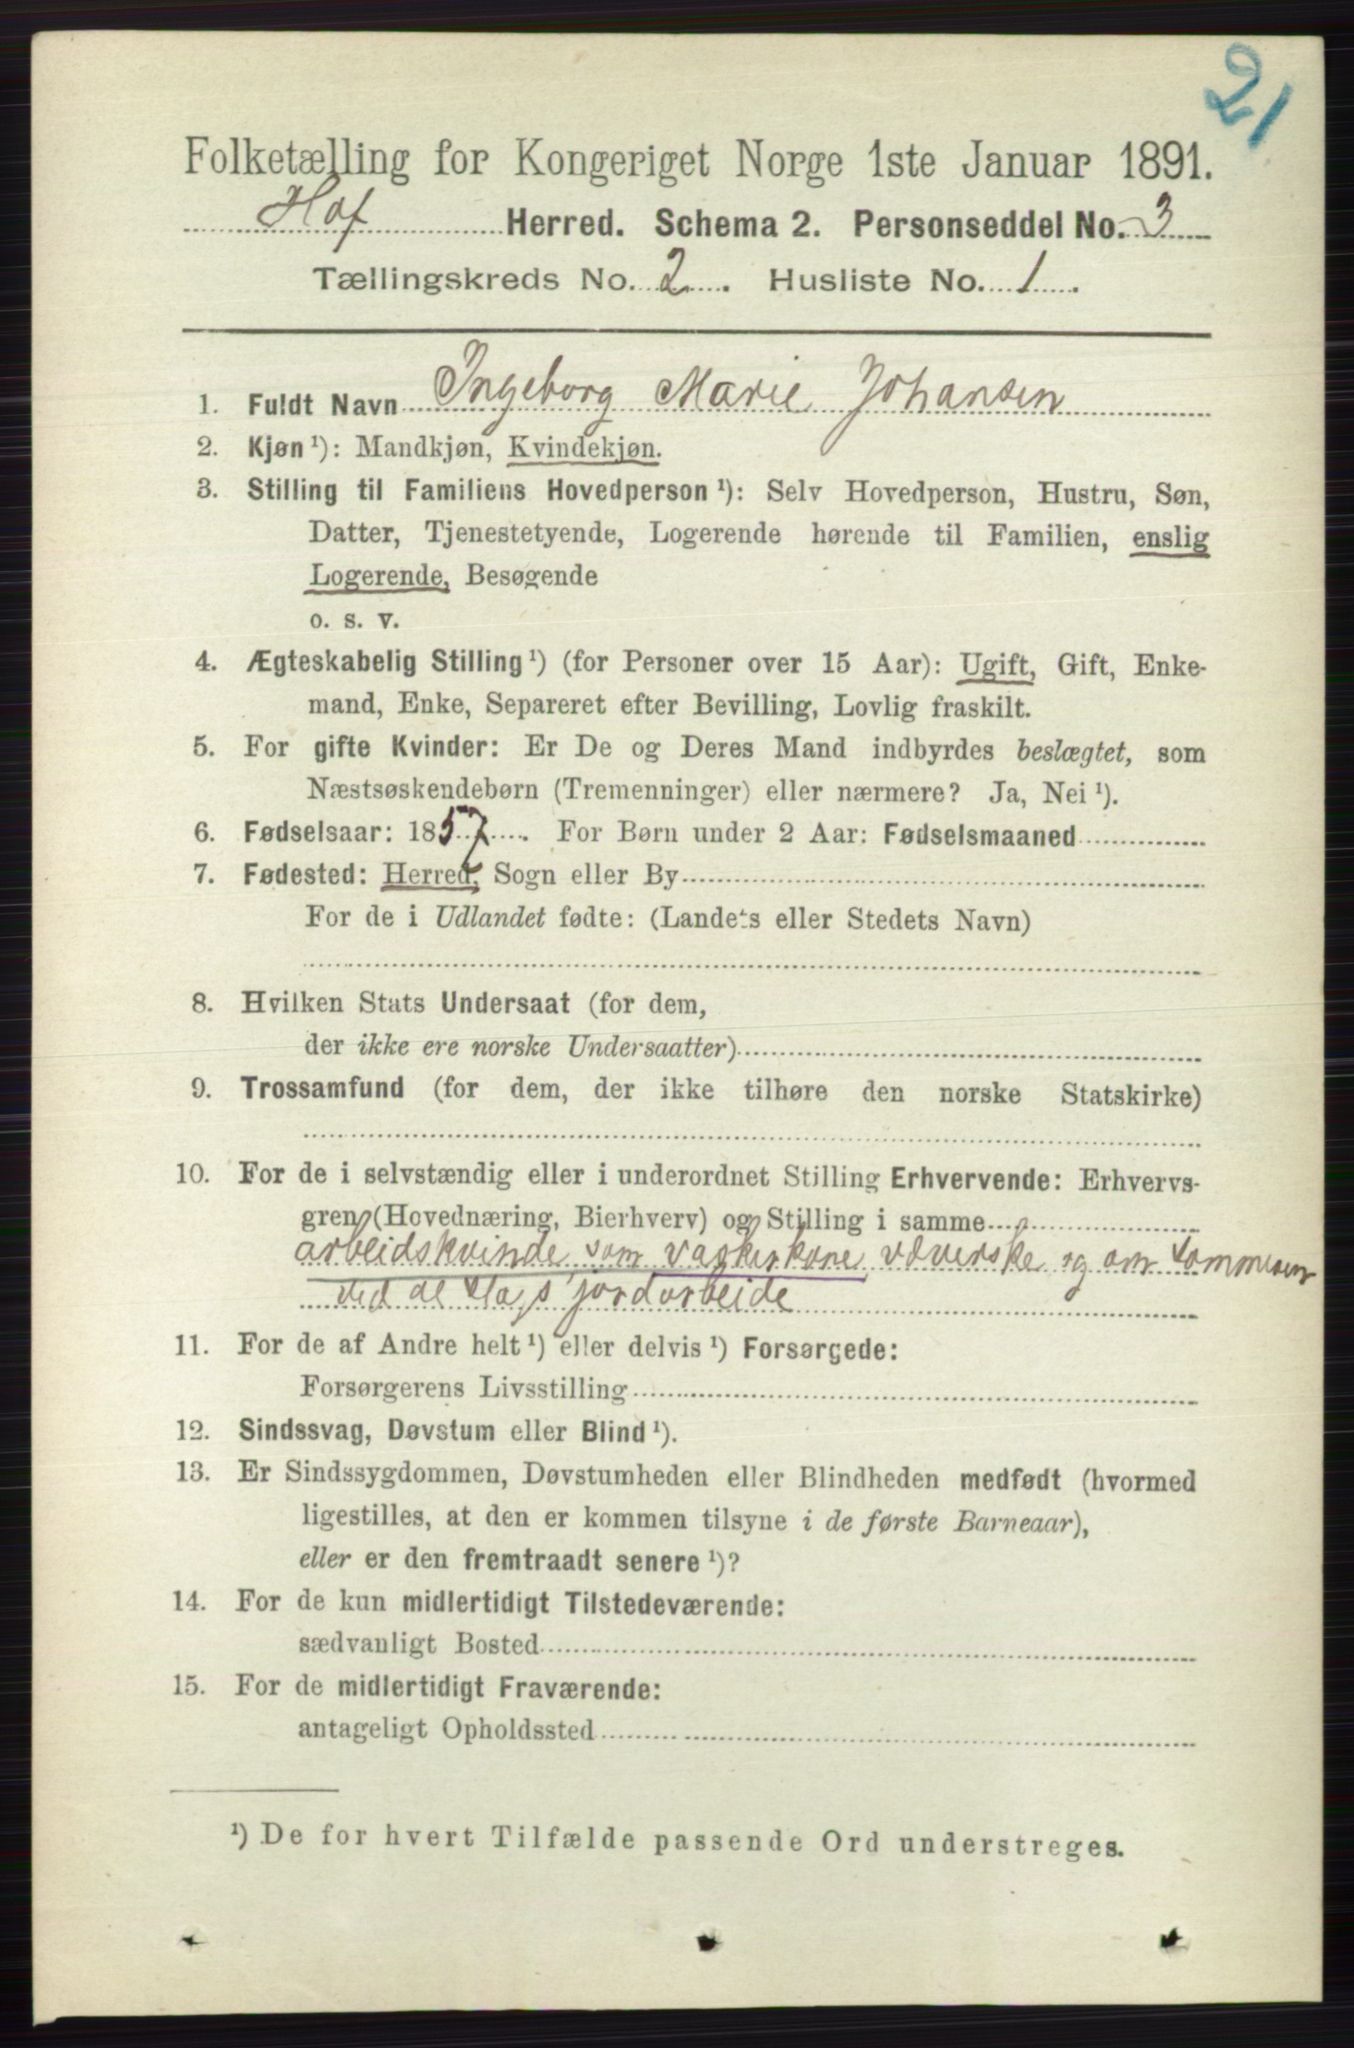 21
Folketælling for Kongeriget Norge 1ste Januar 1891.
Hof Herred. Schema 2. Personseddel No. 3
Tællingskreds No. 2. Husliste No. 1.
1. Fuldt Navn Ingeborg Marie Johansen
2. Kjøn ¹): Mandkjøn, Kvindekjøn.
3. Stilling til Familiens Hovedperson ¹): Selv Hovedperson, Hustru, Søn,
Datter, Tjenestetyende, Logerende hørende til Familien, enslig
Logerende, Besøgende
o. s. v.
4. Ægteskabelig Stilling ¹) (for Personer over 15 Aar): Ugift, Gift, Enke-
mand, Enke, Separeret efter Bevilling, Lovlig fraskilt.
5. For gifte Kvinder: Er De og Deres Mand indbyrdes beslægtet, som
Næstsøskendebørn (Tremenninger) eller nærmere? Ja, Nei ¹).
6. Fødselsaar: 1857. For Børn under 2 Aar: Fødselsmaaned
7. Fødested: Herred, Sogn eller By
For de i Udlandet fødte: (Landets eller Stedets Navn)
8. Hvilken Stats Undersaat (for dem,
der ikke ere norske Undersaatter)
9. Trossamfund (for dem, der ikke tilhøre den norske Statskirke)
10. For de i selvstændig eller i underordnet Stilling Erhvervende: Erhvervs-
gren (Hovednæring, Bierhverv) og Stilling i samme
arbeidskvinde som vaskerkone væverske og om sommeren
ved jordarbeide
11. For de af Andre helt ¹) eller delvis ¹) Forsørgede:
Forsørgerens Livsstilling
12. Sindssvag, Døvstum eller Blind ¹).
13. Er Sindssygdommen, Døvstumheden eller Blindheden medfødt (hvormed
ligestilles, at den er kommen tilsyne i de første Barneaar),
eller er den fremtraadt senere ¹)?
14. For de kun midlertidigt Tilstedeværende:
sædvanligt Bosted
15. For de midlertidigt Fraværende:
antageligt Opholdssted
¹) De for hvert Tilfælde passende Ord understreges.